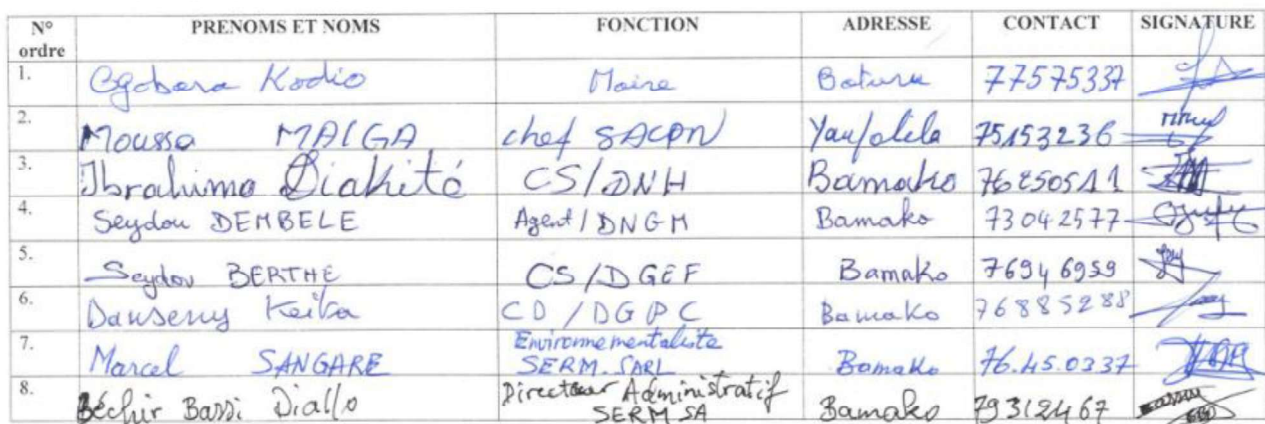 N° ordre PRENOMS ET NOMS FONCTION ADRESSE CONTACT SIGNATURE
1. Ogobara Kodio Maire 77575337
2. Moussa MAIGA chef SACPN 75153236
3. Ibrahima Diakité CS/DNH Bamako 76250511
4. Seydou DEMBELE Agent/DNGM Bamako 73042577
5. Seydou BERTHE CS/DGEF Bamako 76946959
6. Danseny Keita CD/DGPC Bamako 76885288
7. Marcel SANGARE Environnementaliste SERM.SARL Bamako 76.45.0337
8. Béchir Bassi Diallo Directeur Administratif SERM SA Bamako 79312467